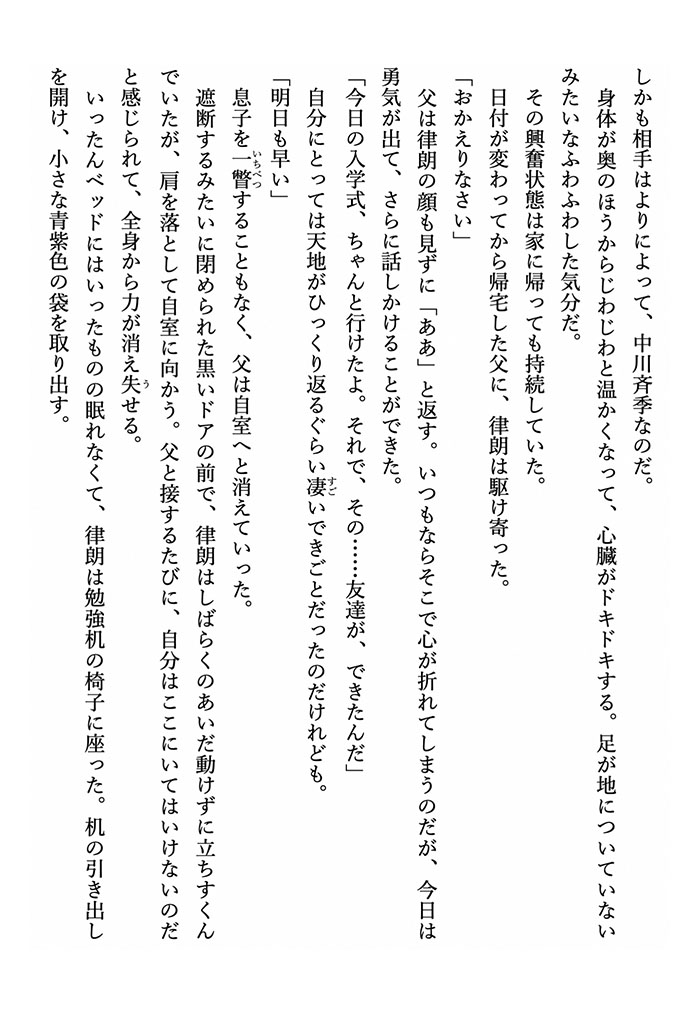 しかも相手はよりによって、中川斉季なのだ。
身体が奥のほうからじわじわと温かくなって、心臓がドキドキする。足が地についていない
みたいなふわふわした気分だ。
その興奮状態は家に帰っても持続していた。
日付が変わってから帰宅した父に、律朗は駆け寄った。
「おかえりなさい」
父は律朗の顔も見ずに「ああ」と返す。いつもならそこで心が折れてしまうのだが、今日は
勇気が出て、さらに話しかけることができた。
「今日の入学式、ちゃんと行けたよ。それで、その……友達が、できたんだ」
自分にとっては天地がひっくり返るぐらい凄いできごとだったのだけれども。
「明日も早い」
息子を一瞥することもなく、父は自室へと消えていった。
遮断するみたいに閉められた黒いドアの前で、律朗はしばらくのあいだ動けずに立ちすくん
でいたが、肩を落として自室に向かう。父と接するたびに、自分はここにいてはいけないのだ
と感じられて、全身から力が消え失せる。
いったんベッドにはいったものの眠れなくて、律朗は勉強机の椅子に座った。机の引き出し
を開け、小さな青紫色の袋を取り出す。